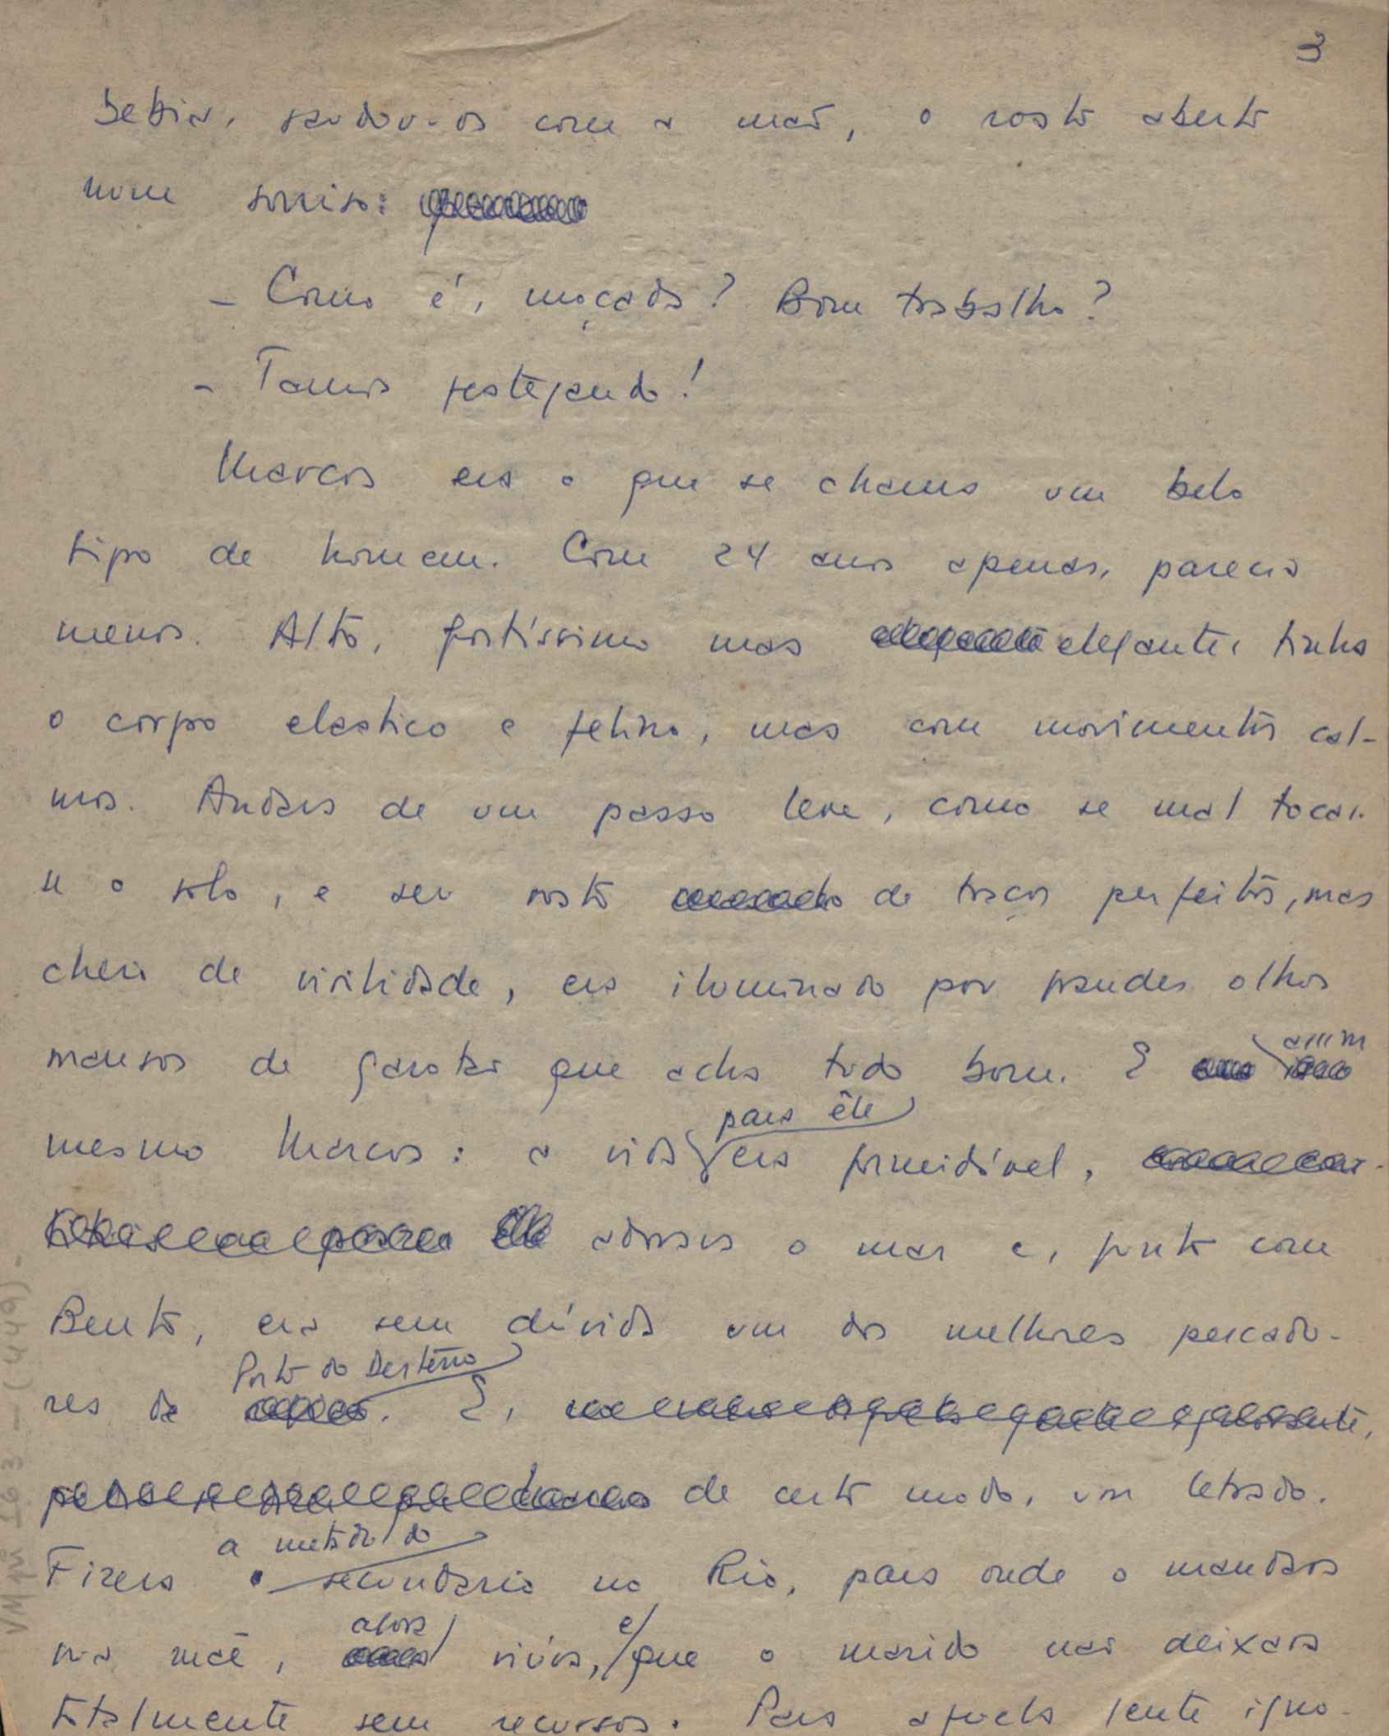 3
bebia, saudou-os com a mão, o rosto aberto
num sorriso:
- Como é, moçada? Bom trabalho?
- Tamos festejando!
Marcos era o que se chama um belo
tipo de homem. Com 24 anos apenas, parecia
menos. Alto, fortíssimo mas elegante, tinha
o corpo elastico e felino, mas com movimentos cal-
mos. Andava de um passo leve, como se mal tocas-
se o solo, e seu rosto de traços perfeitos, mas
cheio de virilidade, era iluminado por grandes olhos
mansos de garoto que acha tudo bom. E assim
mesmo Marcos: a vida para êle era formidável,
adorava o mar e, junto com
Bento, era sem dúvida um dos melhores pescado-
res de Porto do Destêrro. E,
de certo modo, um letrado.
Fizera a metade do secundario no Rio, para onde o mandara
sua mãe, agora viúva, e que o marido não deixara
totalmente sem recursos. Para aquela gente igno-
VM pi 163 - (449) -